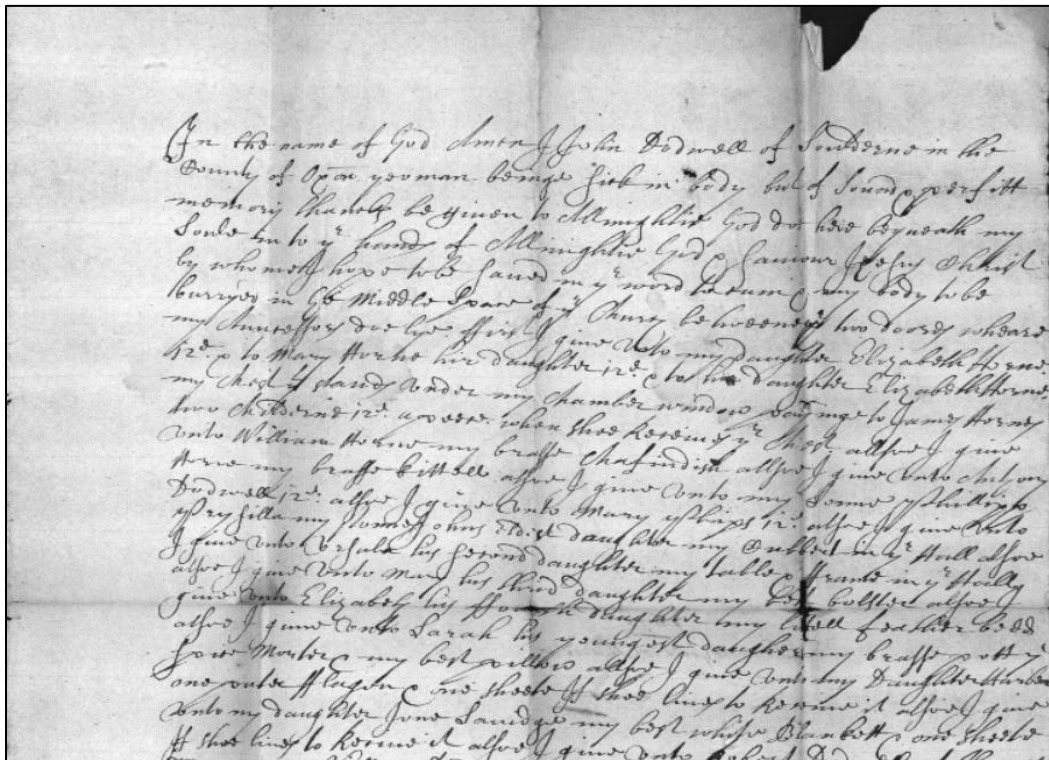 In the name of God Amen I John Dodwell of Soulderne in the
County of Oxon yeoman beinge sick in body but of sound & perfitt
memory thanks be given to Allmightie God doe here bequeath my
Soule in to ye hands of Allmightie God & saviour Jesus Christ
by whome I hope to be saved my body to be
burryed in ye Middle Space of ye Church betweene ye two doores wheare
my Auncestors doe lye ffirst I give unto my daughter Elizabeth Horne
12d & to Mary Horne hir daughter 12d & to hir daughter Elizabeth Horne
my Chest yt stands under my Chamber window payinge to James Hornes
two Childerne 12d a peece when shee Receives ye Chest allsoe I give
unto William Horne my brasse Chafindish allsoe I give unto Antony
Horne my brasse kittell allsoe I give unto my Sonne
Dodwell 12d allsoe I give unto Mary 12d allsoe I give unto
my Sonne Johns Eldest daughter my Cubbert in ye Hall allsoe
I give unto Ursula his second daughter my table & frame in ye Hall
allsoe I give unto Mary his third daughter my best bolster allsoe I
give unto Elizabeth his ffourth daughter my littell feather bedd
allsoe I give unto Sarah his youngest daughter my brasse pott ye
Morter & my best pillow allsoe I give unto my Daughter
one puter fflagon & one sheete If shee lives to Receive it allsoe I give
unto my daughter Jone Savidge my best white Blankett & one sheete
If shee lives to Receive it allsoe I give unto Robert